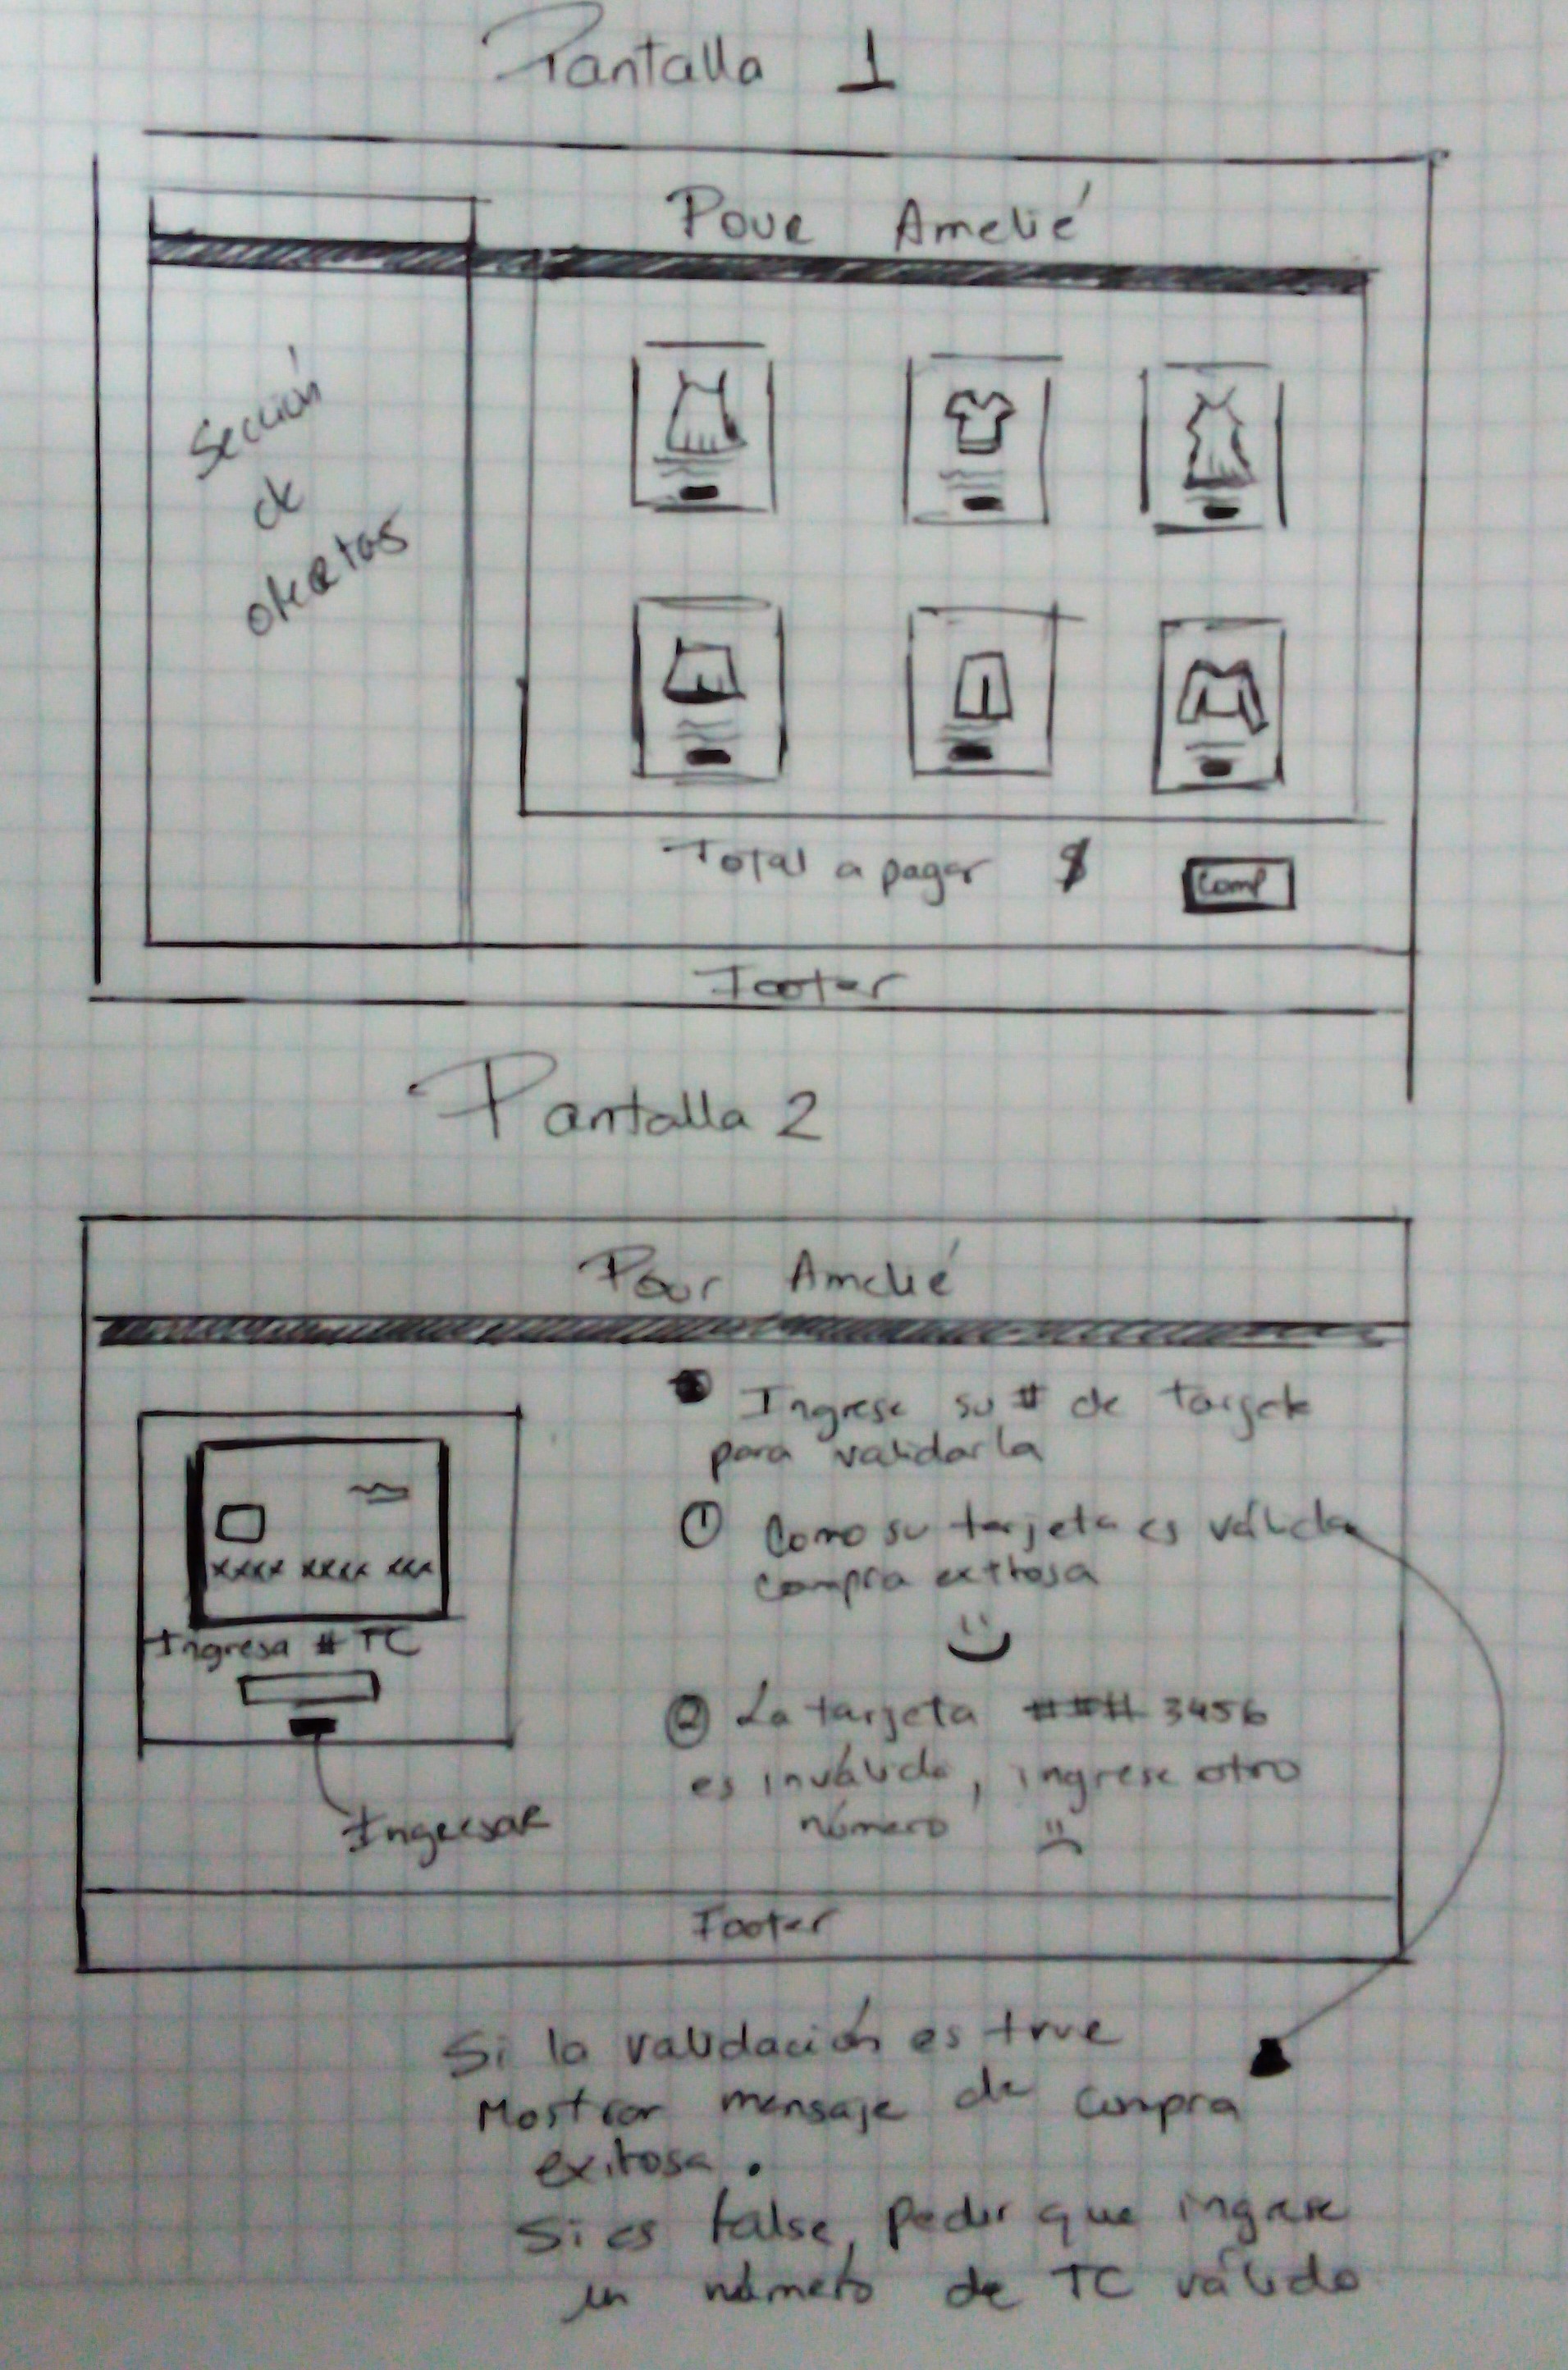 Pantalla 1
Pour Amelié
Sección
de
ofertas
Total a pagar $
Comp
Footer
Pantalla 2
Pour Amelié
Ingrese su # de tarjeta
para validarla
① Como su tarjeta es válida
compra exitosa
xxxx xxxx xxx
Ingresa # TC
② La tarjeta ### 3456
es inválida, ingrese otro
número
Ingresar
Footer
Si la validación es true
Mostrar mensaje de compra
exitosa.
Si es false, pedir que ingrese
un número de TC válido